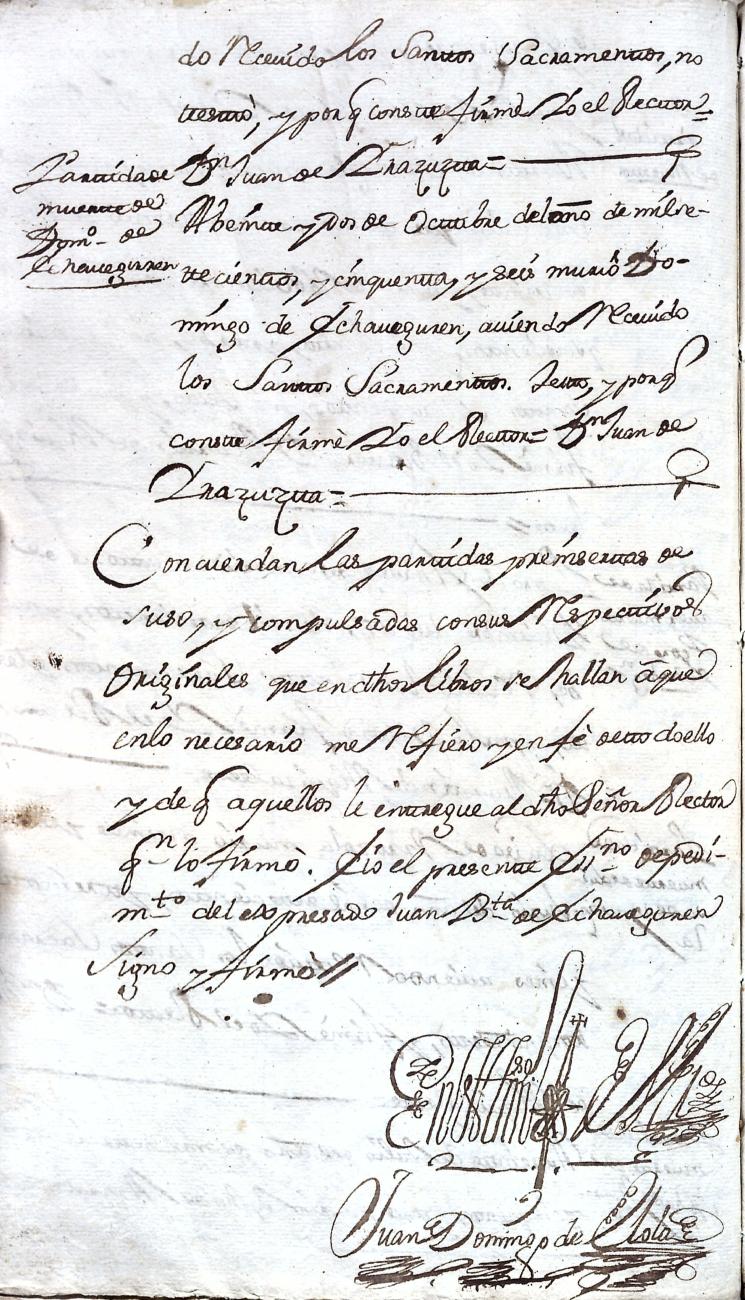 do Recevido los Santtos Sacramenttos, no
ttesttò, y porq̃ constte firmè Yo el Recttor=
Dn Juan de Yrazuztta=
Parttida de
muertte de
Domo. de
Echaveguren
A beintte y dos de Octtubre del año de milse-
tteciențtos, y cinquentta, y seis muriò Do-
mingo de Echaveguren, aviendo Recevido
los Santtos Sacramenttos. Testto, y porq̃
constte firmè Yo el Recttor= Dn Juan de
Yrazuztta=
Concuerdan las parttidas preinserttas de
suso, y compulsadas consus Respecttivos
Originales que en dhos libros se hallan à que
enlo necesario me Refiero y en fè de ttodo ello
y de q̃ aquellos le enttregue al dho Señor Recttor
qn lo firmò. Èio el presentte Essno de pedi-
mto del expresado Juan Bta de Echaveguren
Signo y firmè
En testtimo de Verdad
Juan Domingo de Olotá